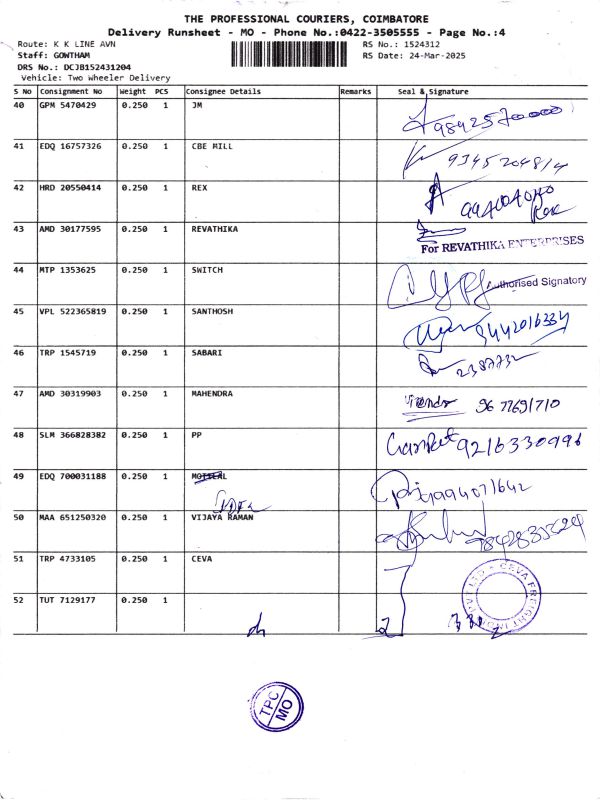 THE PROFESSIONAL COURIERS, COIMBATORE
Delivery Runsheet - MO - Phone No.:0422-3505555 - Page No.:4
Route: K K LINE AVN RS No.: 1524312
Staff: GOWTHAM RS Date: 24-Mar-2025
DRS No.: DCJB152431204
Vehicle: Two Wheeler Delivery
S No Consignment No Weight PCS Consignee Details Remarks Seal & Signature
40 GPM 5470429 0.250 1 JM
41 EDQ 16757326 0.250 1 CBE MILL 9345204814
42 HRD 20550414 0.250 1 REX
43 AMD 30177595 0.250 1 REVATHIKA
For REVATHIKA ENTERPRISES
44 MTP 1353625 0.250 1 SWITCH
Authorised Signatory
45 VPL 522365819 0.250 1 SANTHOSH 9442016334
46 TRP 1545719 0.250 1 SABARI
47 AMD 30319903 0.250 1 MAHENDRA 9677691710
48 SLM 366828382 0.250 1 PP 9216330996
49 EDQ 700031188 0.250 1
50 MAA 651250320 0.250 1 VIJAYA RAMAN
51 TRP 4733105 0.250 1 CEVA
CEVA FREIGHT INDIA PVT LTD
52 TUT 7129177 0.250 1
TPC
MO